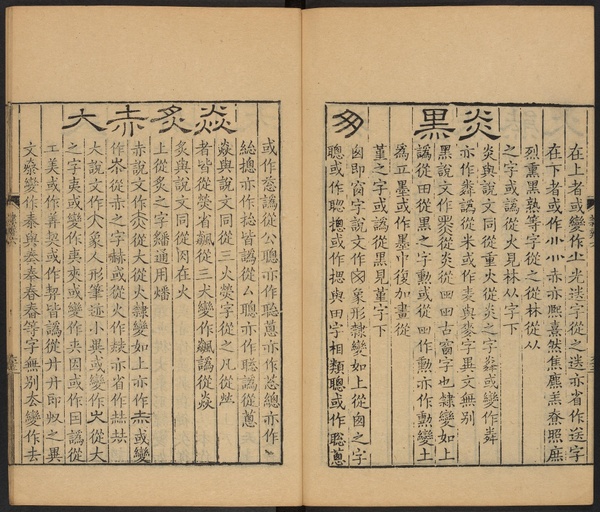 在上者或變作𭕄光送字從之送亦省作送字
在下者或作小灬赤亦熙熹然焦熊羔尞照庶
烈熏黑熟等字從之從林從从
之字或譌從火見林从字下
炎
炎與說文同從重火從炎之字粦或變作粦
亦作粦譌從米或作麦與麥字異文無別
黑
黑說文作從炎從四四古窗字也隸變如上
譌從田從黑之字勲或從田作勳亦作勲變土
爲工墨或作墨巾復加畫從
堇之字或譌從黑見堇字下
囱
囱卽窗字說文作囪象形隸變如上從囱之字
聰或作聰摠或作揌與田字相類聰或作聡蔥
或作怱譌從公聰亦作聡蔥亦作葱總亦作
總摠亦作捴皆譌從厶聰亦作聡譌從蔥
焱
焱與說文同從三火熒字從之凡從𤇾
者皆從熒省飆從三犬變作飆譌從焱
炙
炙與說文同從肉在火
上從炙之字繙通用燔
赤
赤說文作從大從火隸變如上亦作赤或變
作夵從赤之字赫或從火作㷎亦省作㳫㳫
大
大說文作大象人形筆迹小異或變作大從大
之字夷或變作夷夾或變作夾因或作囙譌從
工美或作羙契或作挈皆譌從丹丹卽収之異
文桼變作桼與𡗗奉舂春等字無別夳變作去